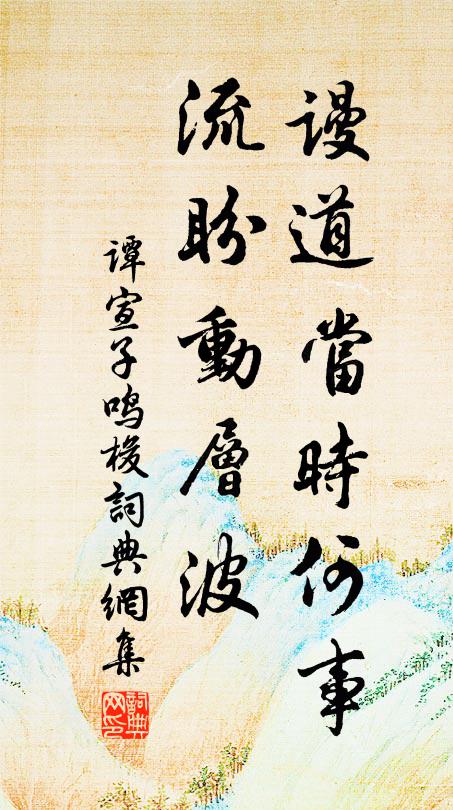 謾道當時何事
流盼動層波
谭宣子鸣梭詞典網集
詞典
网印